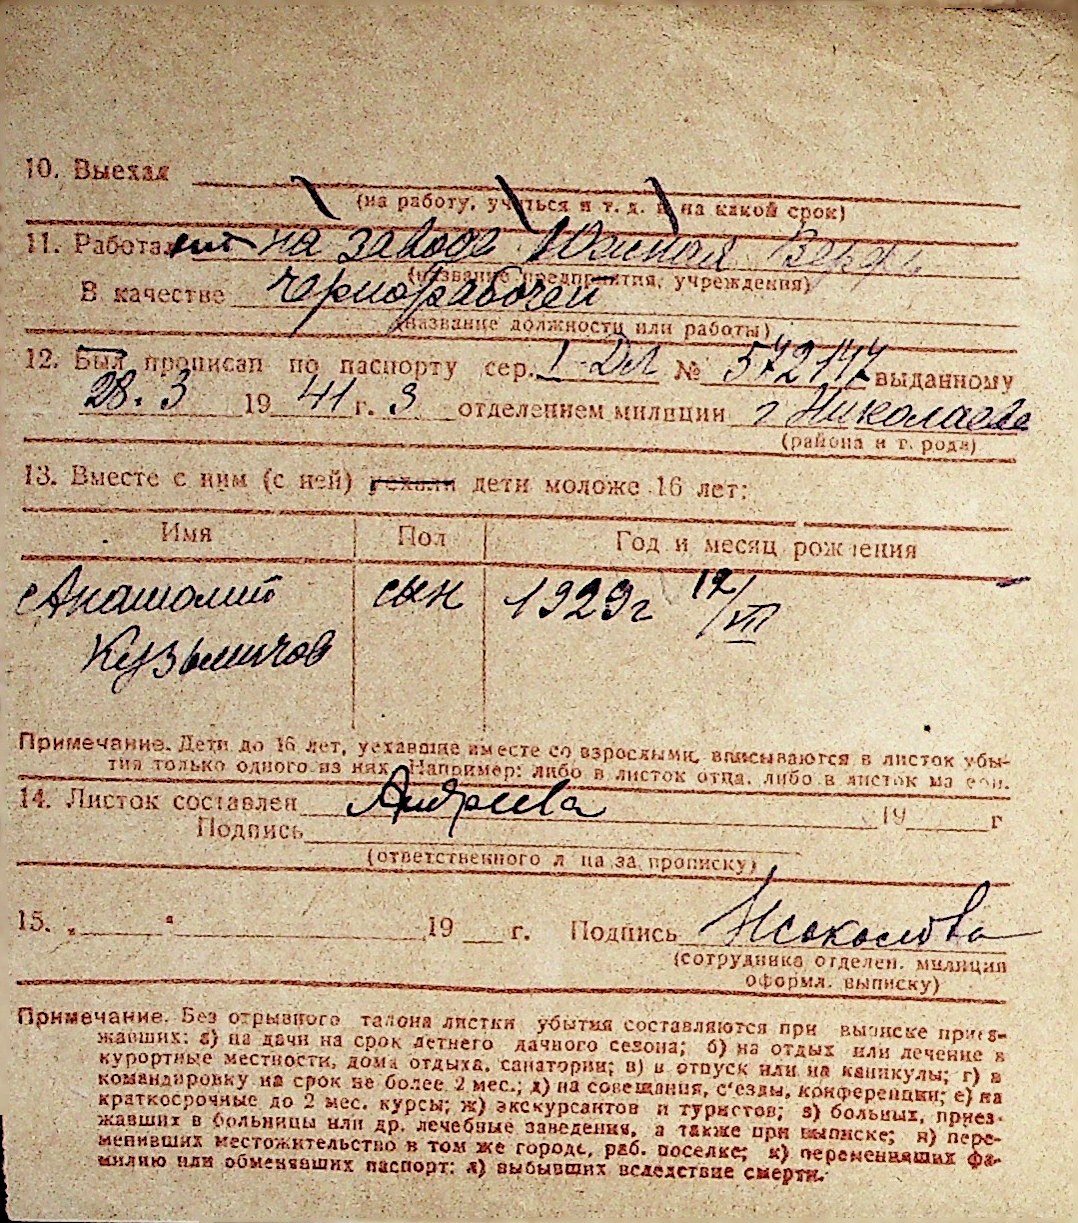 10. Выехал
(на работу, учиться и т. д. и на какой срок)
11. Работал на заводе Южная Верфь
(название предприятия, учреждения)
В качестве чернорабочей
(название должности или работы)
12. Был прописан по паспорту сер. I-ДЛ № 572147 выданному
28. 3 1941 г. 3 отделением милиции г Николаева
(района и т. рода)
13. Вместе с ним (с ней) уехали дети моложе 16 лет:
Имя Пол Год и месяц рождения
Анатолий сын 1929г 12/VIII
Кузьмичов
Примечание. Дети до 16 лет, уехавшие вместе со взрослыми, вписываются в листок убы-
тия только одного из них. Например: либо в листок отца, либо в листок матери.
14. Листок составлен Андреева 19 г
Подпись
(ответственного лица за прописку)
15. „ “ 19 г. Подпись Нсоколова
(сотрудника отделен. милиции
оформл. выписку)
Примечание. Без отрывного талона листки убытия составляются при выписке приез-
жавших: а) на дачи на срок летнего дачного сезона; б) на отдых или лечение в
курортные местности, дома отдыха, санатории; в) в отпуск или на каникулы; г) в
командировку на срок не более 2 мес.; д) на совещания, с'езды, конференции; е) на
краткосрочные до 2 мес. курсы; ж) экскурсантов и туристов; з) больных, приез-
жавших в больницы или др. лечебные заведения, а также при выписке; и) пере-
менивших местожительство в том же городе, раб. поселке; к) переменивших фа-
милию или обменявших паспорт; л) выбывших вследствие смерти.